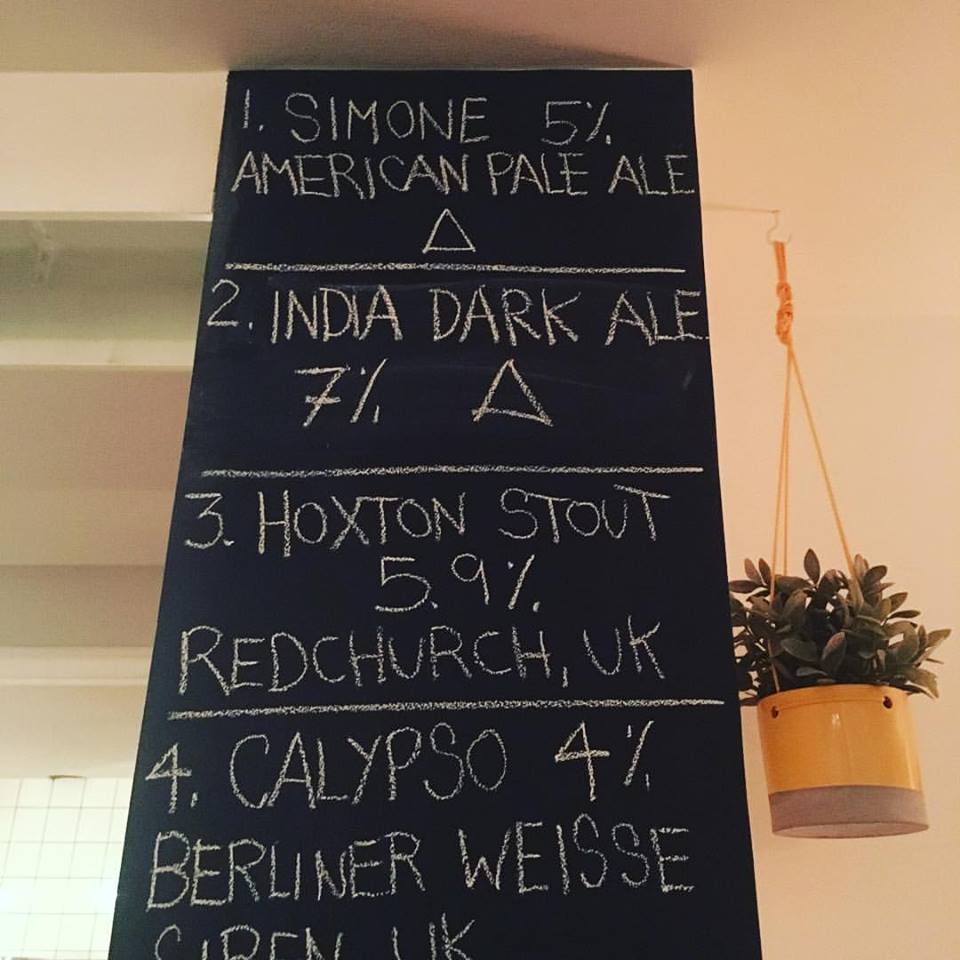 1. SIMONE 5%
AMERICAN PALE ALE
△
2. INDIA DARK ALE
7% △
3. HOXTON STOUT
5.9%
REDCHURCH, UK
4. CALYPSO 4%
BERLINER WEISSE
SIREN UK